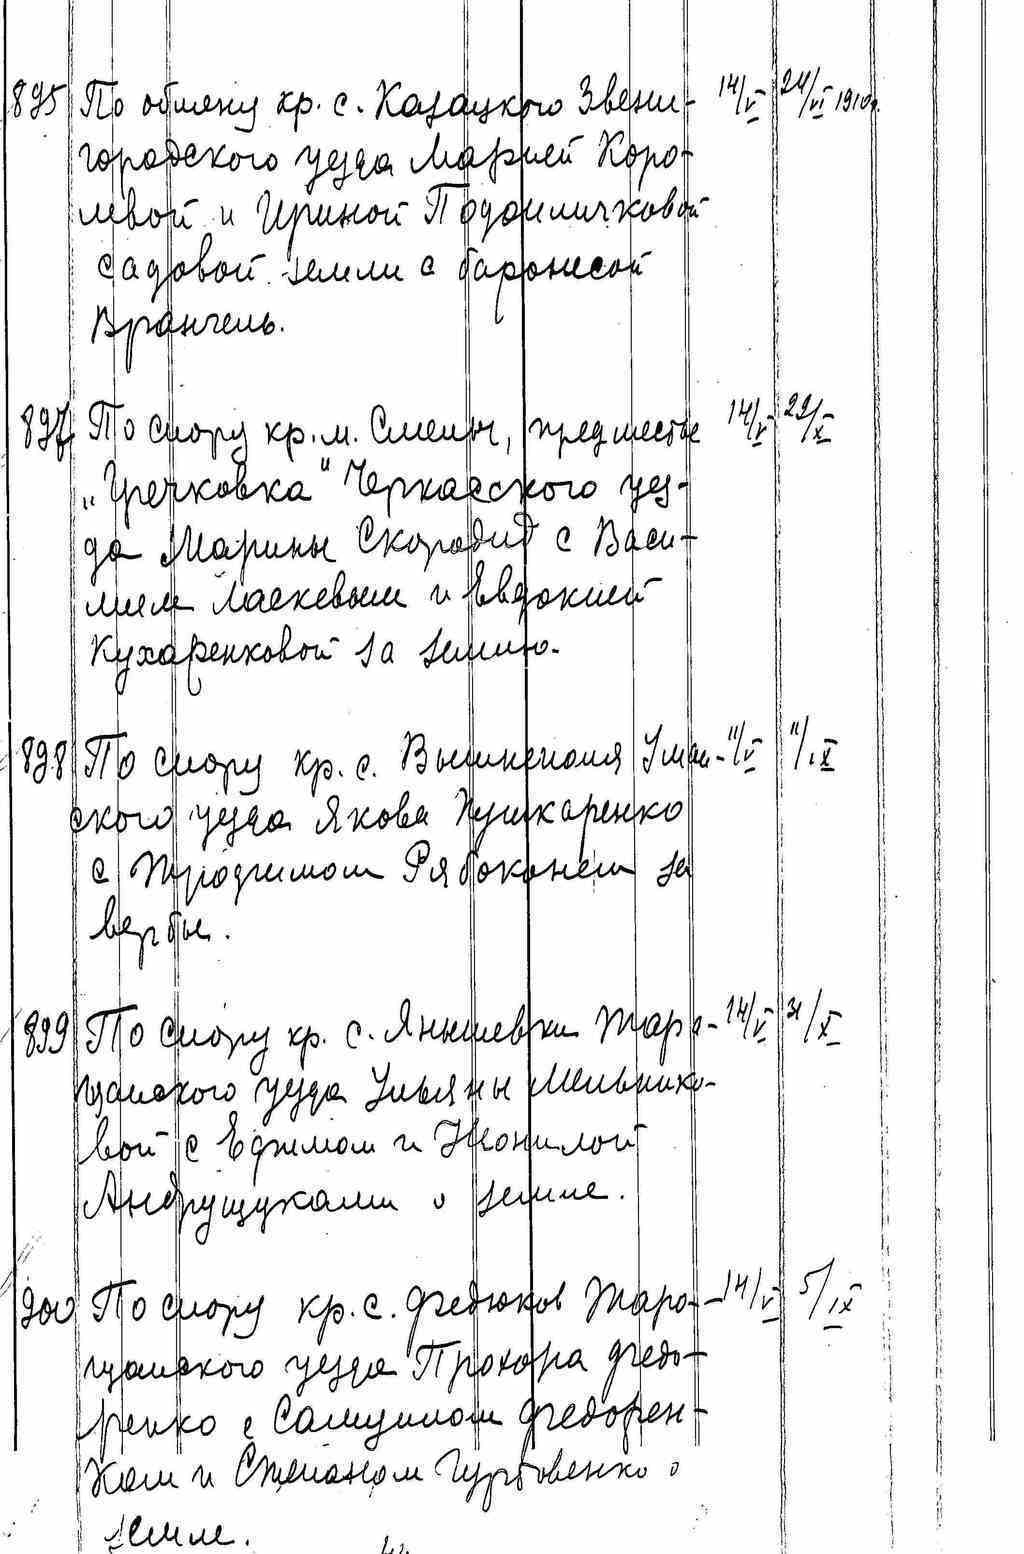 895 По обмену кр. с. Казацкого Звени- 14/V 24/VI 1910г.
городского уезда Марией Коро-
левой и Ириной
садовой земли с баронесой
Врангель.
897 По спору кр. м. Смелы, предместье 14/V 29/X
„Гречковка" Черкасского уез-
да Марины Скородид с Васи-
лием Ласкевым и Евдокией
Кухаренковой за землю.
898 По спору кр. с. Вышнеполя Уман- 11/V 11/IX
ского уезда Якова Пушкаренко
с Трофимом Рябоконем за
вербы.
899 По спору кр. с. Янышевки Тара- 14/V 31/X
щанского уезда Ульяны Мельнико-
вой с Ефимом и Неонилой
Андрущуками о земле.
900 По спору кр. с. Федюков Тара- 14/V 5/IX
щанского уезда Прохора Федо-
ренко с Самуилом Федорен-
ком и Степаном Гурбовенко о
земле.